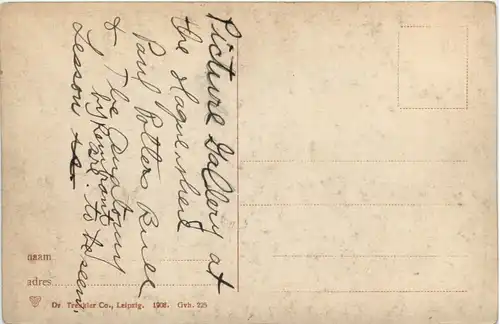 Picture Gallery at
the Hague where
Paul Potters Bull
& The Anatomy
Lesson
by Rembrant
are to be seen.
naam
adres
Dr. Trenkler Co., Leipzig. 1906. Gvh. 725